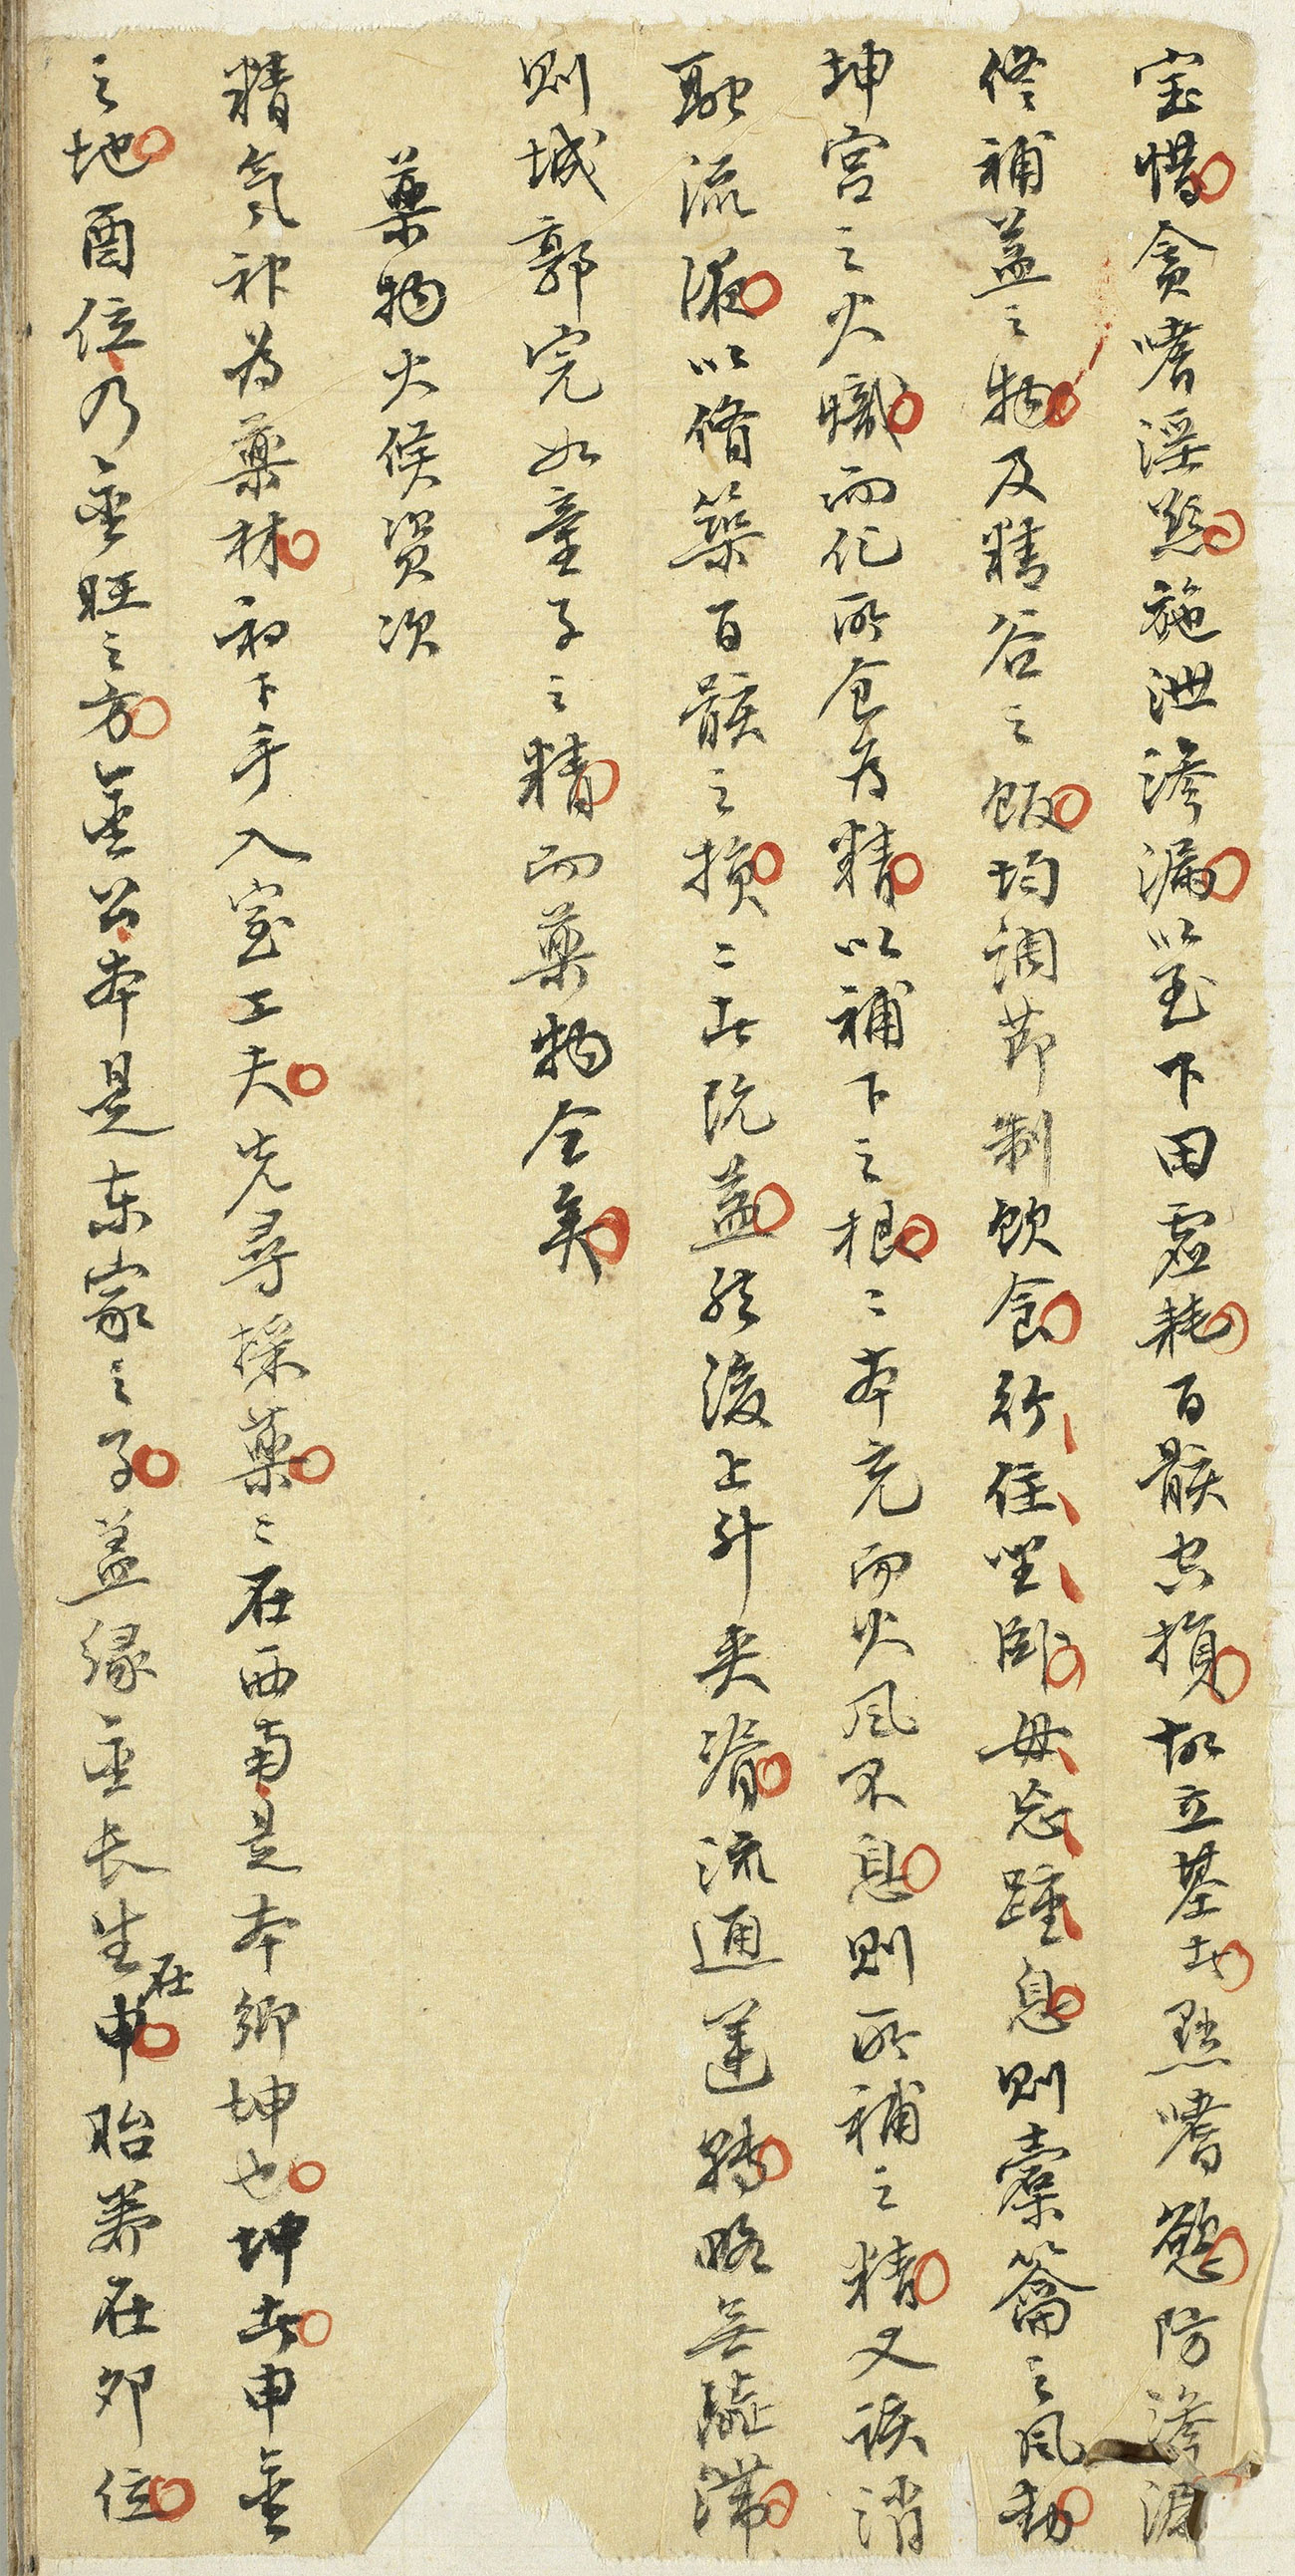 宝惜貪嗜淫慾施泄滲漏以至下田虛耗百骸空損故立基者點嗜慾防滲漏
修補益之物及精谷之飯均調節制飲食行住坐臥毋忘踵息則橐籥之風動
坤宮之火熾而化所食為精以補下之根〻本充而火風不息則所補之精又誒消
融流液以脩築百骸之損〻者既益然後上升夾脊流通運轉略無凝滯
則城郭完如童子之精而藥物全矣
藥物火候資次
精氣神為藥材初下手入室工夫先尋採藥〻在西南是本鄉坤也坤者申金
之地酉位乃金旺之方金公本是東家之子蓋緣金長生在申胎养在卯位